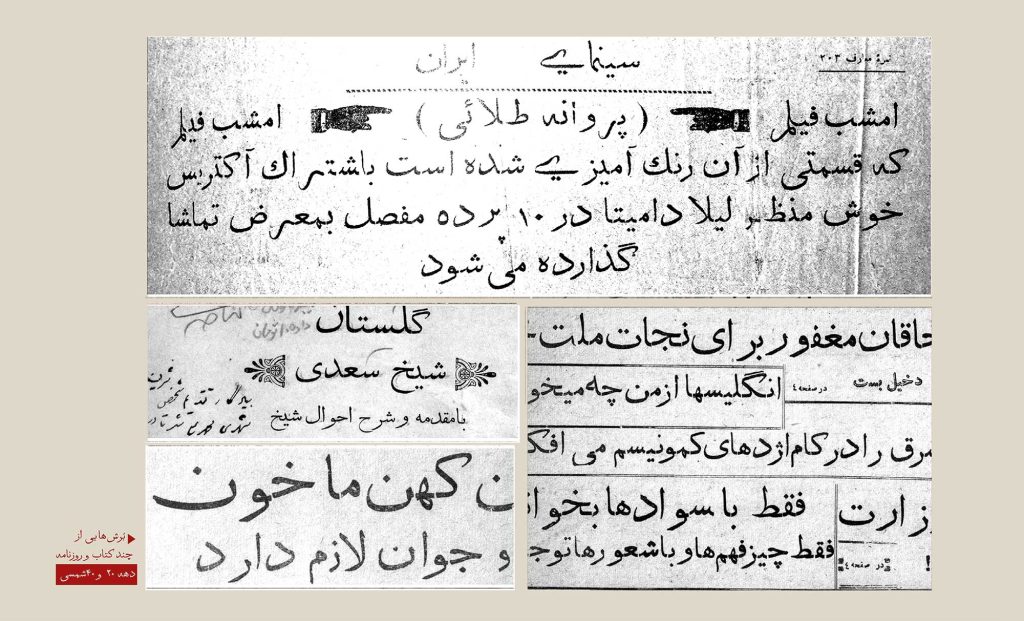 نمرهٔ معارف ۲۰۳
سینمای ایران
امشب فیلم ( پروانه طلائی ) امشب فیلم
که قسمتی از آن رنك آمیزی شده است باشتراك آکتریس
خوش منظر لیلا دامیتا در ۱۰ پرده مفصل بمعرض تماشا
گذارده می شود
گلستان
شیخ سعدی
بامقدمه و شرح احوال شیخ
ن کهن ما خون
و جوان لازم دارد
خاقان مغفور برای نجات ملت
دخیل بست
در صفحه ۴
انگلیسها از من چه میخو
رق را در کام اژدهای کمونیسم می افک
زارت
فقط با سوادها بخوا
فقط چیز فهم‌ها و باشعورها توج
در صفحه ٤
!
بُرش‌هایی از
چند کتاب و روزنامه
دهه ۲۰ و ۴۰ شمسی